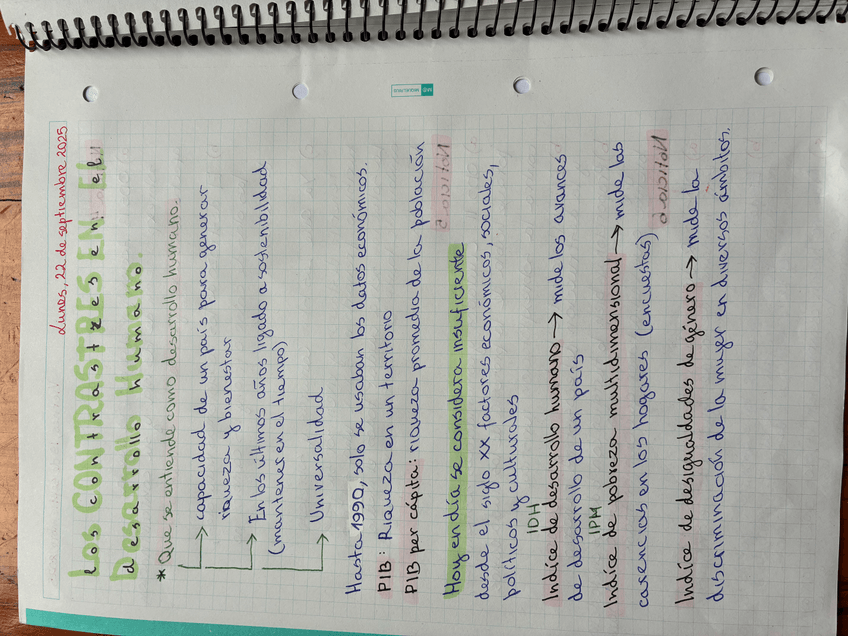 Lunes, 22 de septiembre 2025
Los CONTRASTRES EN El
los contrastres en el
Desarrollo Humano.
desarrollo humano.
* Que se entiende como desarrollo humano.
→ capacidad de un país para generar
riqueza y bienestar
→ En los últimos años ligado a sostenibilidad
(mantener en el tiempo)
→ Universalidad
Hasta 1990, solo se usaban los datos económicos.
PIB: Riqueza en un territorio
PIB per cápta: riqueza promedia de la población
Hoy en día se considera insuficiente
desde el siglo XX factores económicos, sociales,
políticos y culturales
IDH
Indíce de desarrollo humano → mide los avances
de desarrollo de un país
IPM
Indíce de pobreza multidimensional → mide las
carencias en los hogares (encuestas)
Indíce de desigualdades de género → mide la
discriminación de la mujer en diversos ámbitos.